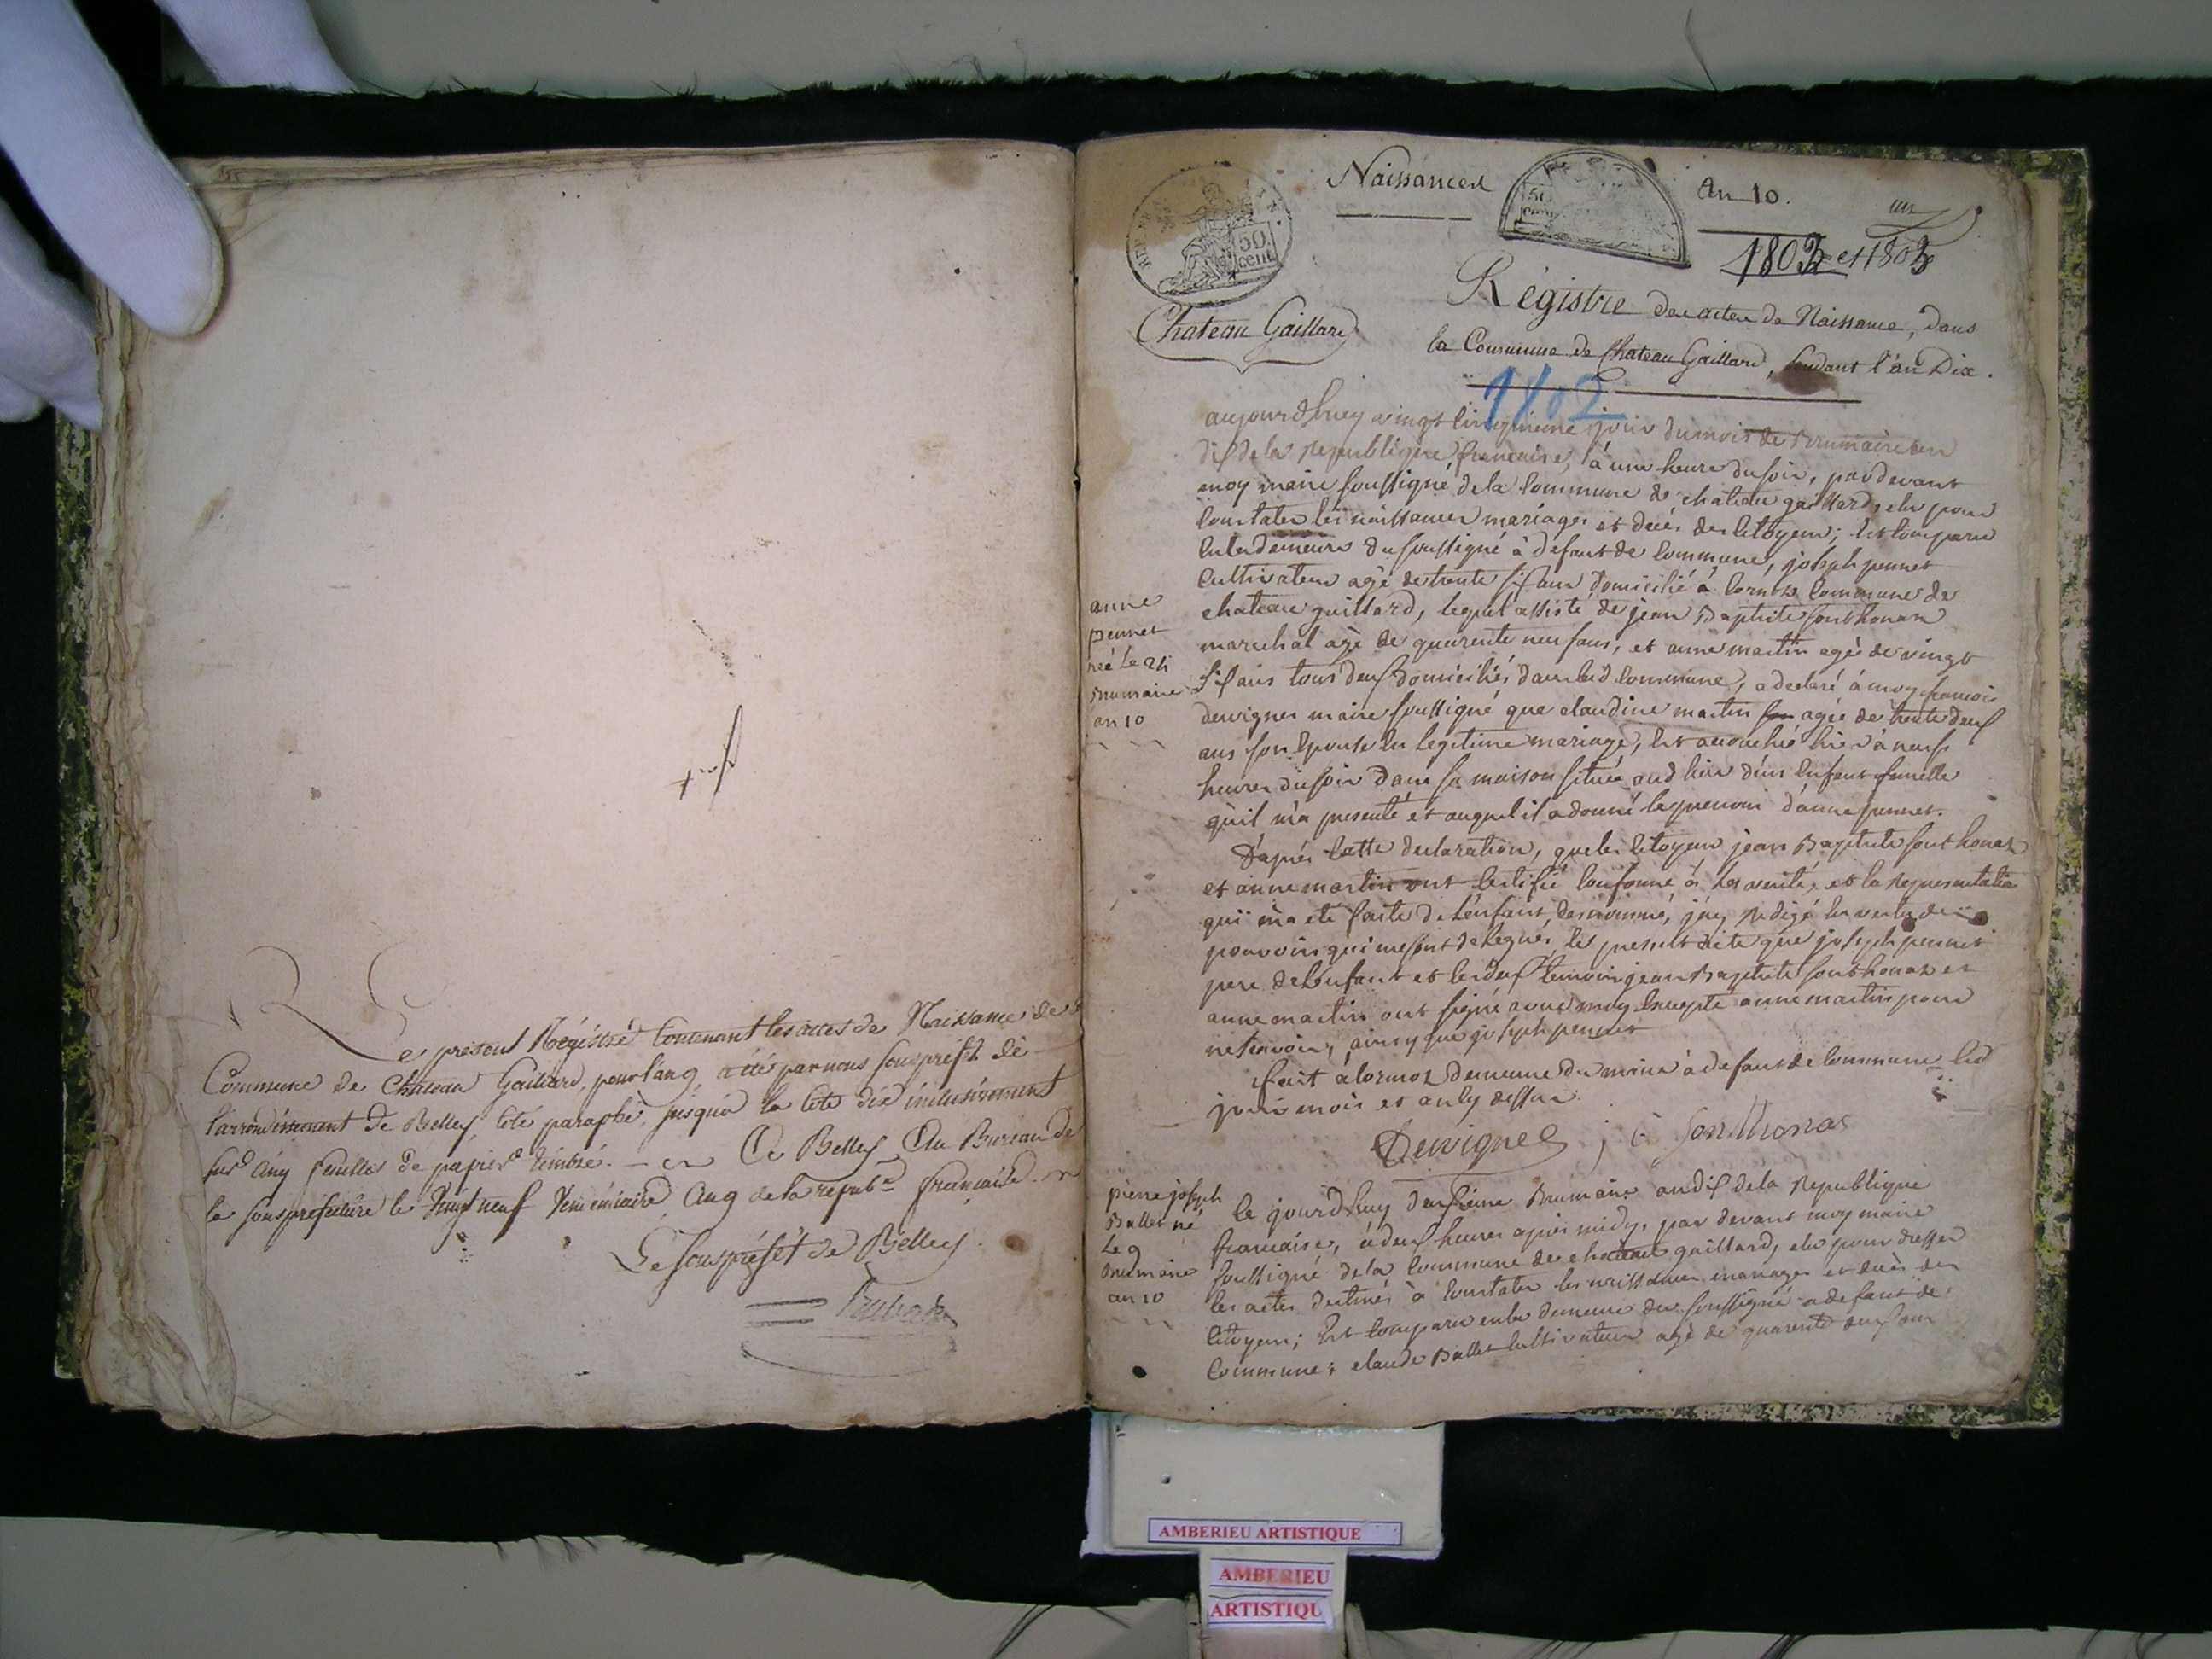 Le present Régistre Contenant les actes de Naissance de la
Commune de Chateau Gaillard, pour l'an 9, a été par nous souspréfet de
l'arrondissement de Belley, coté paraphé, jusqu'à la cote dix inclusivement
sur cinq feuilles de papier timbré. A Belley Au Bureau de
la sousprefecture le Vingt neuf Vendémiaire an 9 de la répub.ne française
Le souspréfet de Belley.
Naissances
An 10.
un
50 cent
1802 et 1803
Chateau Gaillard
Régistre des actes de Naissance, dans
la Commune de Chateau Gaillard, pendant l'an Dix.
1802
aujourdhuy vingt cinquieme jour du mois de Brumaire an
dix de la Republique francaise, à une heure du soir, pardevant
moy maire soussigné de la commune de chateau gaillard, elu pour
constater les naissances mariages et decés des citoyens; est comparu
en la demeure du soussigné à defaut de commune, joseph pennet
cultivateur agé de trente six ans domicilié à cormoz commune de
chateau gaillard, lequel assisté de jean Baptiste sonthonax
marechal agé de quarente neuf ans, et anne martin agée de vingt
six ans tous deux domiciliés dans lad commune, a declaré à moy francois
devignes maire soussigné que claudine martin agée de trente deux
ans son epouse en legitime mariage, est accouchée hier à neuf
heures du soir dans sa maison située aud lieu d'un enfant femelle
qu'il m'a presenté et auquel il a donné le prenom d'anne pennet.
D'aprés cette declaration, que les citoyens jean Baptiste sonthonax
et anne martin ont certifié conforme à la verité, et la representation
qui m'a eté faite de l'enfant denommé, j'ay redigé en vertu des
pouvoirs qui me sont delegués le present acte que joseph pennet
pere de l'enfant et les deux temoins jean Baptiste sonthonax et
anne martin ont signé avec moy excepté anne martin pour
ne savoir, ainsy que joseph pennet
fait à cormoz demeure du maire à defaut de commune led
jour mois et an cy dessus
Devignes j B Sonthonax
anne
pennet
née le 24
brumaire
an 10
pierre joseph
Ballet né
le 9
brumaire
an 10
le jourdhuy dixieme Brumaire an dix de la Republique
francaise, à deux heures aprés midy, par devant moy maire
soussigné de la commune de chateau gaillard, elu pour dresser
les actes destinés à constater les naissances mariages et decés des
citoyens; est comparu en la demeure du soussigné a defaut de
commune; claude Ballet cultivateur agé de quarente deux ans
AMBERIEU ARTISTIQUE
AMBERIEU
ARTISTIQU